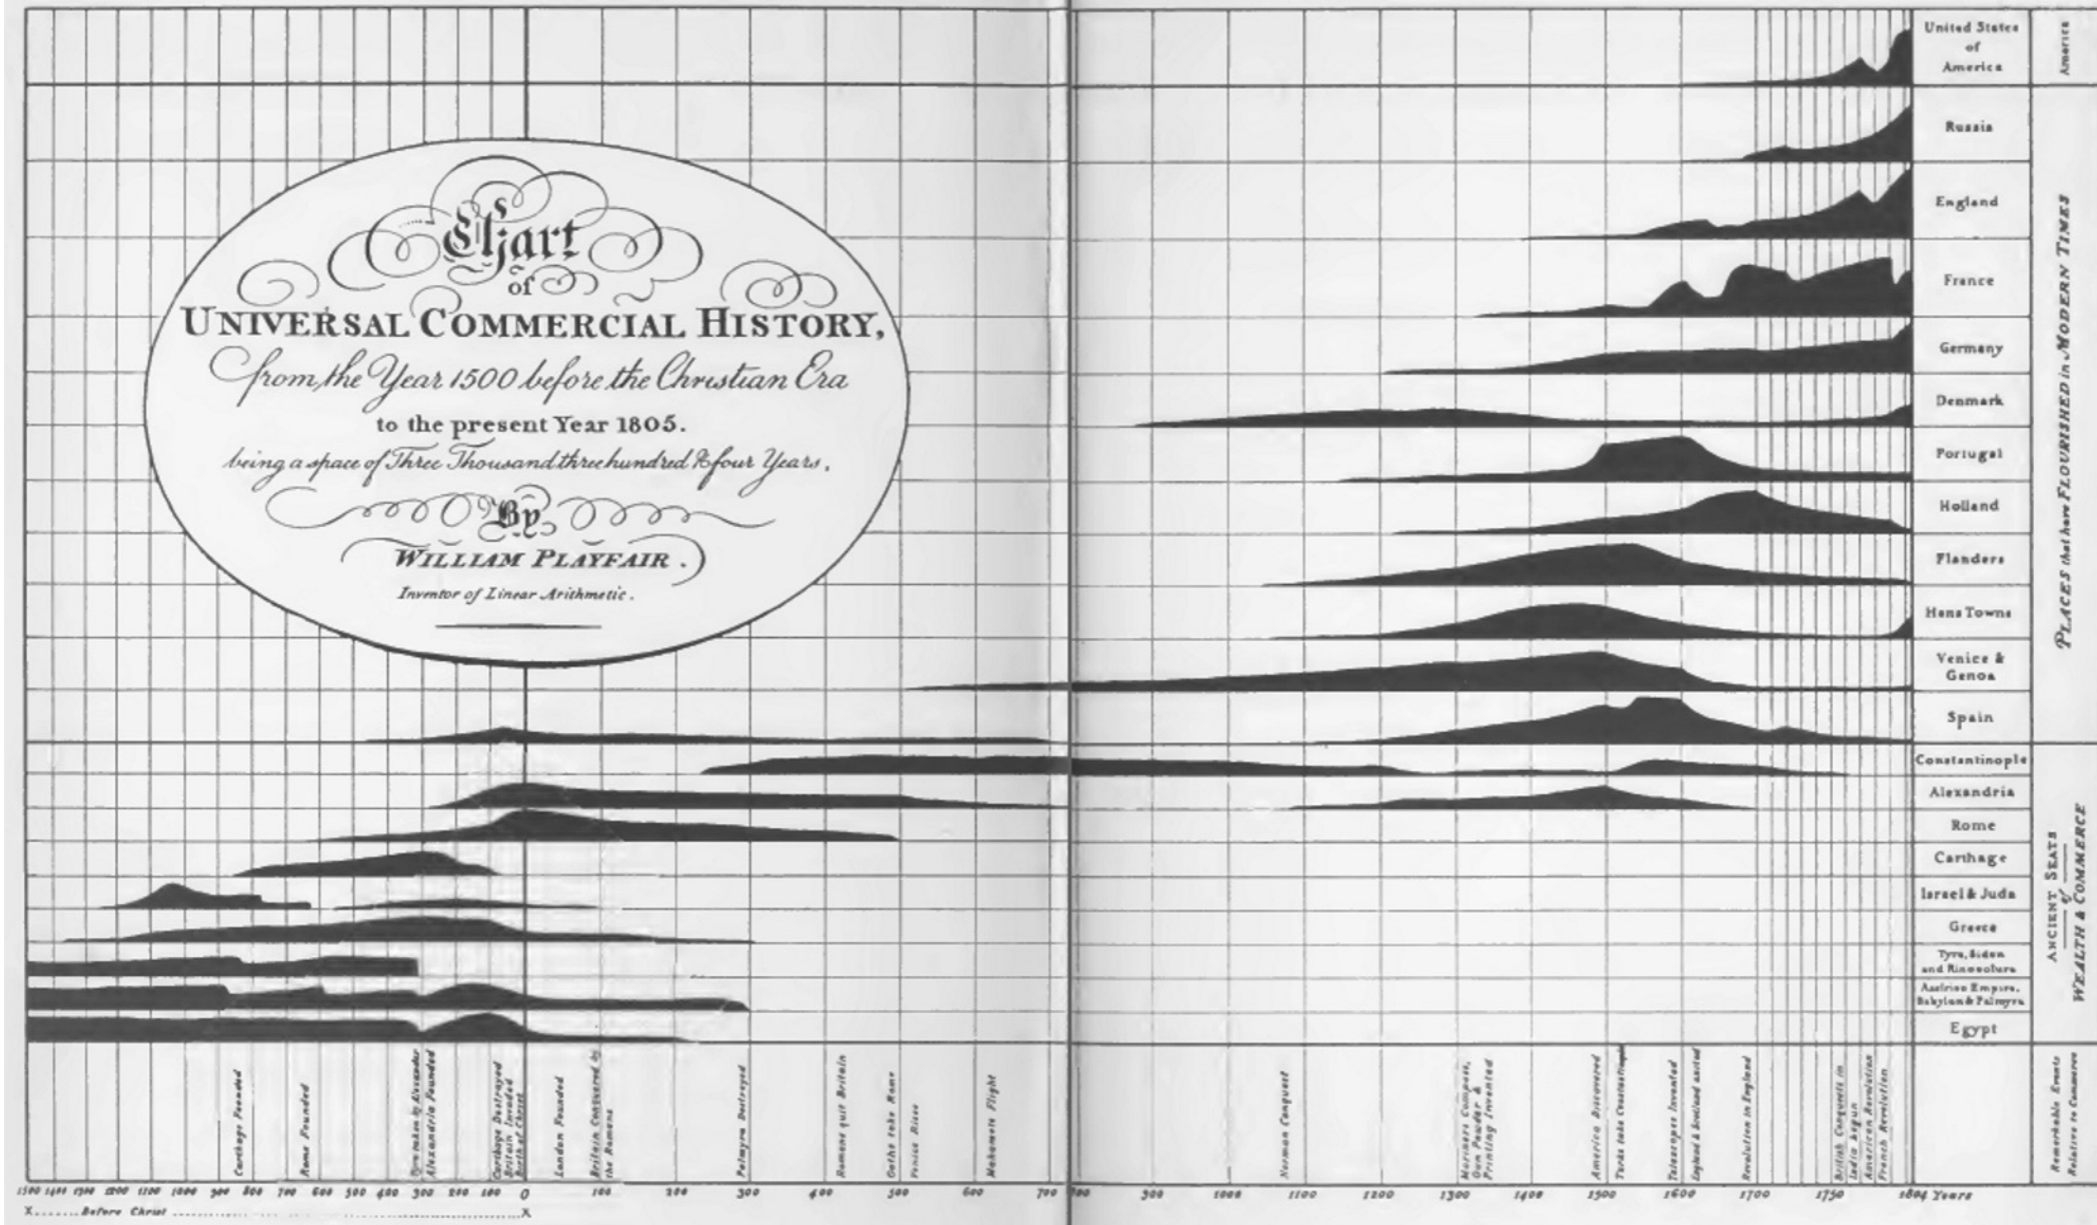 Chart
of
UNIVERSAL COMMERCIAL HISTORY,
from the Year 1500 before the Christian Era
to the present Year 1805.
being a space of Three Thousand three hundred & four Years,
By
WILLIAM PLAYFAIR.
Inventor of Linear Arithmetic.
United States
of
America
Russia
England
France
Germany
Denmark
Portugal
Holland
Flanders
Hans Towns
Venice &
Genoa
Spain
Constantinople
Alexandria
Rome
Carthage
Israel & Juda
Greece
Tyre, Sidon
and Rinocolura
Assirian Empire,
Babylon & Palmyra
Egypt
America
PLACES that have FLOURISHED in MODERN TIMES
ANCIENT SEATS
of
WEALTH & COMMERCE
Remarkable Events
Relative to Commerce
Carthage Founded
Rome Founded
Tyre taken by Alexander
Alexandria Founded
Carthage Destroyed
Britain Invaded
Birth of Christ
London Founded
Britain Conquered by
the Romans
Palmyra Destroyed
Romans quit Britain
Goths take Rome
Venice Rises
Mahomets Flight
Norman Conquest
Mariners Compass,
Gun Powder &
Printing Invented
America Discovered
Turks take Constantinople
Telescopes Invented
England & Scotland united
Revolution in England
British Conquests in
India begun
American Revolution
French Revolution
1500 1400 1300 1200 1100 1000 900 800 700 600 500 400 300 200 100 0 100 200 300 400 500 600 700 800 900 1000 1100 1200 1300 1400 1500 1600 1700 1750 1804 Years
X Before Christ X